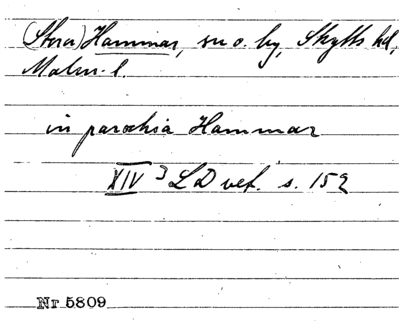 (Stora) Hammar, sn o. by, Skytts hd,
Malm. l.
in parochia Hammar
XIV 3 LD vet. s. 152
Nr 5809